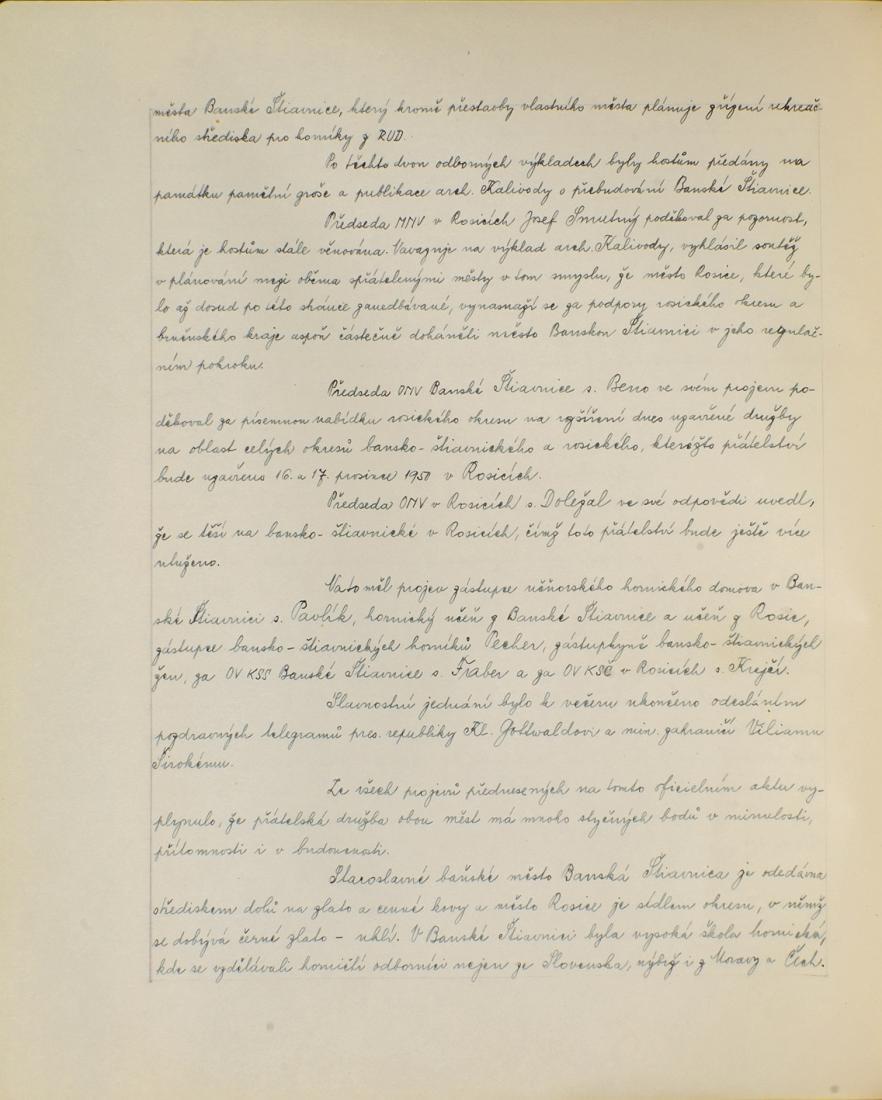 města Banské Štiavnice, který kromě přestavby vlastního města plánuje zřízení rekreač-
ního střediska pro horníky z RUD.
Po těchto dvou odborných výkladech byly hostům předány na
památku pamětní groše a publikace arch. Kalivody o přebudování Banské Štiavnice.
Předseda MNV v Rosicích Josef Smutný poděkoval za pozornost,
která je hostům stále věnována. Navazuje na výklad arch. Kalivody, vyhlásil soutěž
v plánování mezi oběma spřátelenými městy v tom smyslu, že město Rosice, které by-
lo až dosud po této stránce zanedbávané, vynasnaží se za podpory rosického okresu a
brněnského kraje aspoň částečně doháněti město Banskou Štiavnici v jeho regulač-
ním pokroku.
Předseda ONV Banské Štiavnice s. Beno ve svém projevu po-
děkoval za písemnou nabídku rosického okresu na rozšíření dnes uzavřené družby
na oblast celých okresů bansko-štiavnického a rosického, kteréžto přátelství
bude uzavřeno 16. a 17. prosince 1950 v Rosicích.
Předseda ONV v Rosicích s. Doležal ve své odpovědi uvedl,
že se těší na bansko-štiavnické v Rosicích, čímž toto přátelství bude ještě více
utuženo.
Nato měl projev zástupce učňovského hornického domova v Ban-
ské Štiavnici s. Pavlík, hornický učeň z Banské Štiavnice a učeň z Rosic,
zástupce bansko-štiavnických horníků Pecher, zástupkyně bansko-štiavnických
žen, za OV KSS Banské Štiavnice s. Fraber a za OV KSČ v Rosicích s. Krejčí.
Slavnostní jednání bylo k večeru ukončeno odesláním
pozdravných telegramů pres. republiky Kl. Gottwaldovi a min. zahraničí Viliamu
Širokému.
Ze všech projevů přednesených na tomto oficielním aktu vy-
plynulo, že přátelská družba obou měst má mnoho styčných bodů v minulosti,
přítomnosti i v budoucnosti.
Staroslavné baňské město Banská Štiavnica je odedávna
střediskem dolů na zlato a cenné kovy a město Rosice je sídlem okresu, v němž
se dobývá černé zlato - uhlí. V Banské Štiavnici byla vysoká škola hornická,
kde se vzdělávali horničtí odborníci nejen ze Slovenska, nýbrž i z Moravy a Čech.